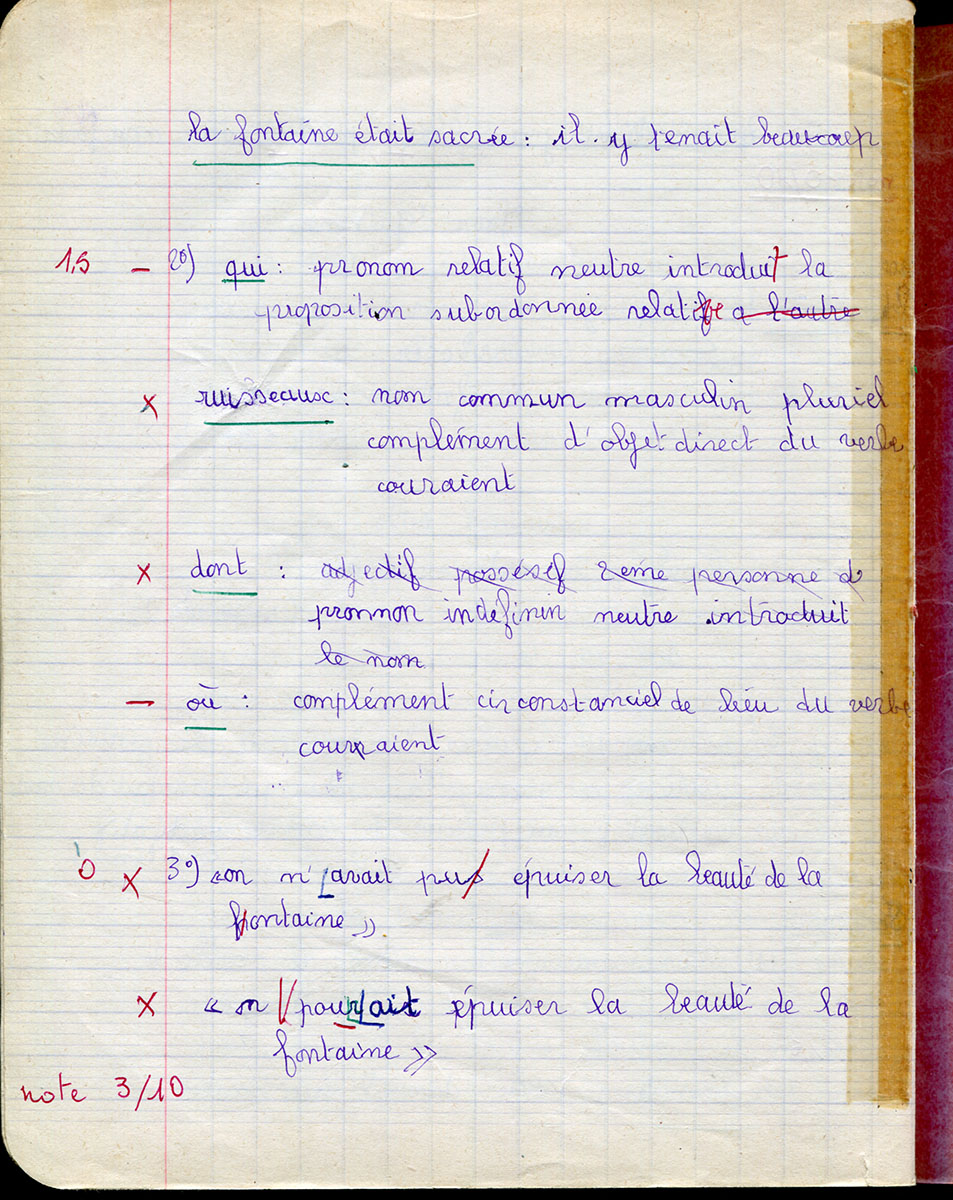 la fontaine était sacrée : il y tenait beaucoup
1,5 – 2°) qui : pronom relatif neutre introduit la
proposition subordonnée relatife a l'autre
x ruisseaux : nom commun masculin pluriel
complément d'objet direct du verbe
couraient
x dont : adjectif possésif 2eme personne d
pronmon indefinin neutre introduit
le nom
– où : complément circonstanciel de lieu du verbe
courraient
0 x 3°) « on n'avait pus épuiser la beauté de la
fontaine »
x « on pourait épuiser la beauté de la
fontaine »
note 3/10